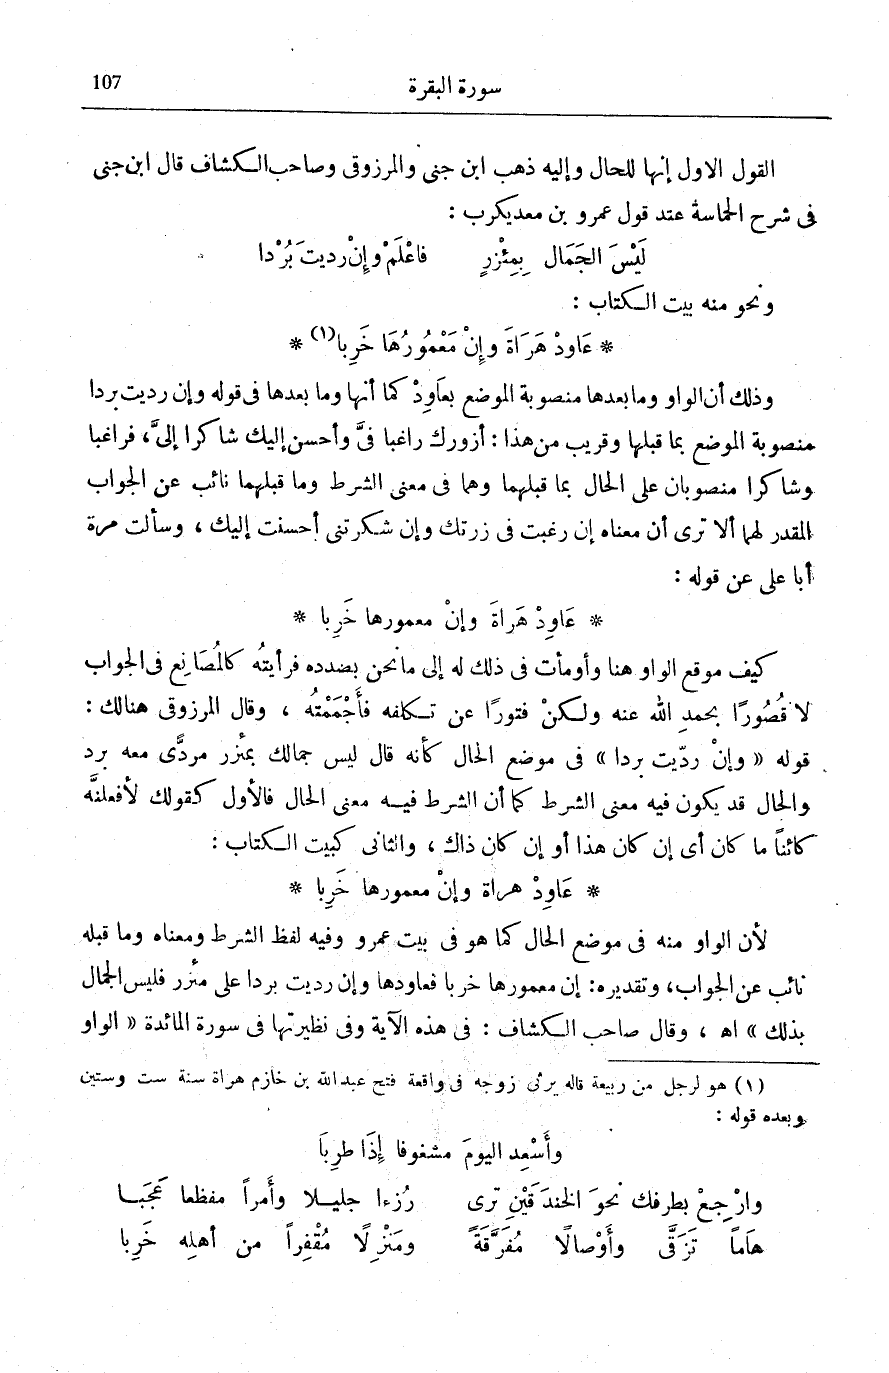 سورة البقرة 107
القول الاول إنها للحال وإليه ذهب ابن جنى والمرزوقى وصاحب الكشاف قال ابن جنى
فى شرح الحماسة عند قول عمرو بن معديكرب :
لَيْسَ الجَمَال بِمِئْزرٍ فاعْلَمْ وإِنْ رديتَ بُرْدا
ونحو منه بيت الكتاب :
* عَاودْ هَرَاةَ وإِنْ مَعْمُورُهَا خَرِبا(١) *
وذلك أن الواو وما بعدها منصوبة الموضع بعاوِدْ كما أنها وما بعدها فى قوله وإن رديت بردا
منصوبة الموضع بما قبلها وقريب من هذا : أزورك راغبا فىَّ وأحسن إليك شاكرا إلىَّ، فراغبا
وشاكرا منصوبان على الحال بما قبلهما وهما فى معنى الشرط وما قبلهما نائب عن الجواب
المقدر لهما ألا ترى أن معناه إن رغبت فى زرتك وإن شكرتنى أحسنت إليك ، وسألت مرة
أبا على عن قوله :
* عَاوِدْ هَراةَ وإنْ معمورها خَرِبا *
كيف موقع الواو هنا وأومأت فى ذلك له إلى ما نحن بصدده فرأيتُه كالمُصَانِع فى الجواب
لا قُصُورًا بحمد الله عنه ولكنْ فتورًا عن تكلفه فأَجْمَمْتُه ، وقال المرزوقى هنالك :
قوله « وإنْ ردّيت بردا » فى موضع الحال كأنه قال ليس جمالك بمئزر مردًّى معه برد
والحال قد يكون فيه معنى الشرط كما أن الشرط فيه معنى الحال فالأول كقولك لأفعلنَّه
كائناً ما كان أى إن كان هذا أو إن كان ذاك ، والثانى كبيت الكتاب :
* عَاودْ هراة وإنْ معمورها خَرِبا *
لأن الواو منه فى موضع الحال كما هو فى بيت عمرو وفيه لفظ الشرط ومعناه وما قبله
نائب عن الجواب، وتقديره: إن معمورها خربا فعاودها وإن رديت بردا على مئزر فليس الجمال
بذلك » اه ، وقال صاحب الكشاف : فى هذه الآية وفى نظيرتها فى سورة المائدة « الواو
(١) هو لرجل من ربيعة قاله يرثى زوجه فى واقعة فتح عبد الله بن خازم هراة سنة ست وستين
وبعده قوله :
وأَسْعِد اليومَ مشغوفا إِذَا طرِبَا
وارْجِعْ بطرفك نحوَ الخندَقَيْنِ ترى رُزءا جليلا وأمراً مفظعا عَجَبَا
هَاماً تَزَقَّى وأَوْصالًا مُفَرَّقةً ومَنْزِلًا مُقْفِراً من أهلِه خَرِبا